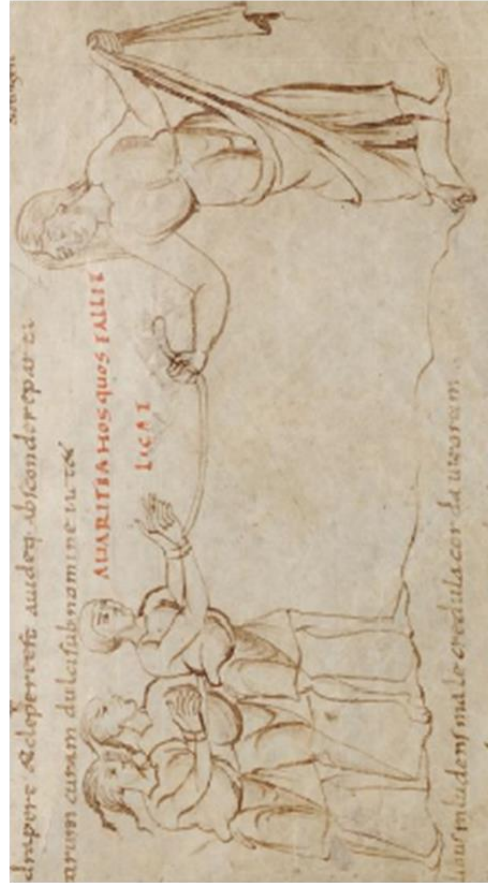 rapere & clepere est auideq; abscondere parta
curam dulci sub nomine iactet
AVARITIA HOS QUOS FALLIT
LIGAT
inludens male credula corda uirorum